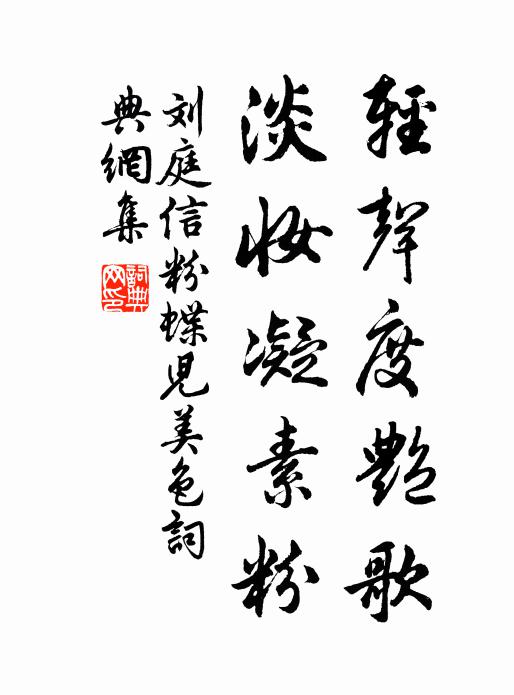 輕聲度艷歌
淡妆凝素粉
刘庭信粉蝶児美色詞
典網集
詞典网印